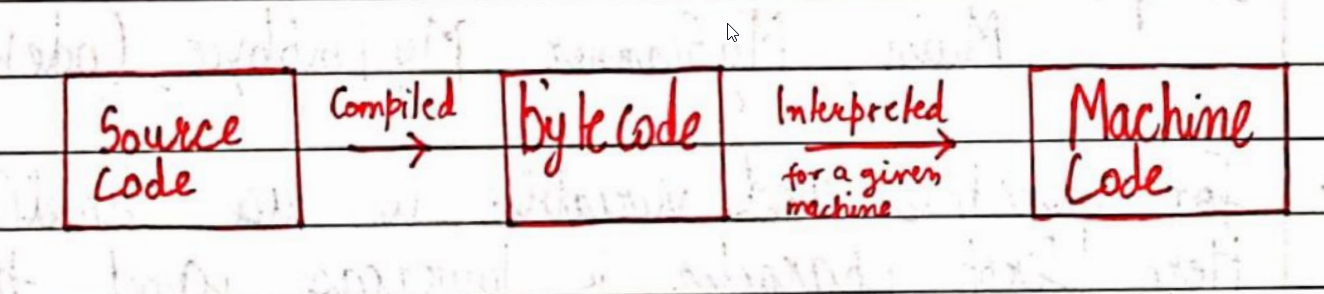 Source
Code
Compiled
bytecode
Interpreted
for a given
machine
Machine
Code